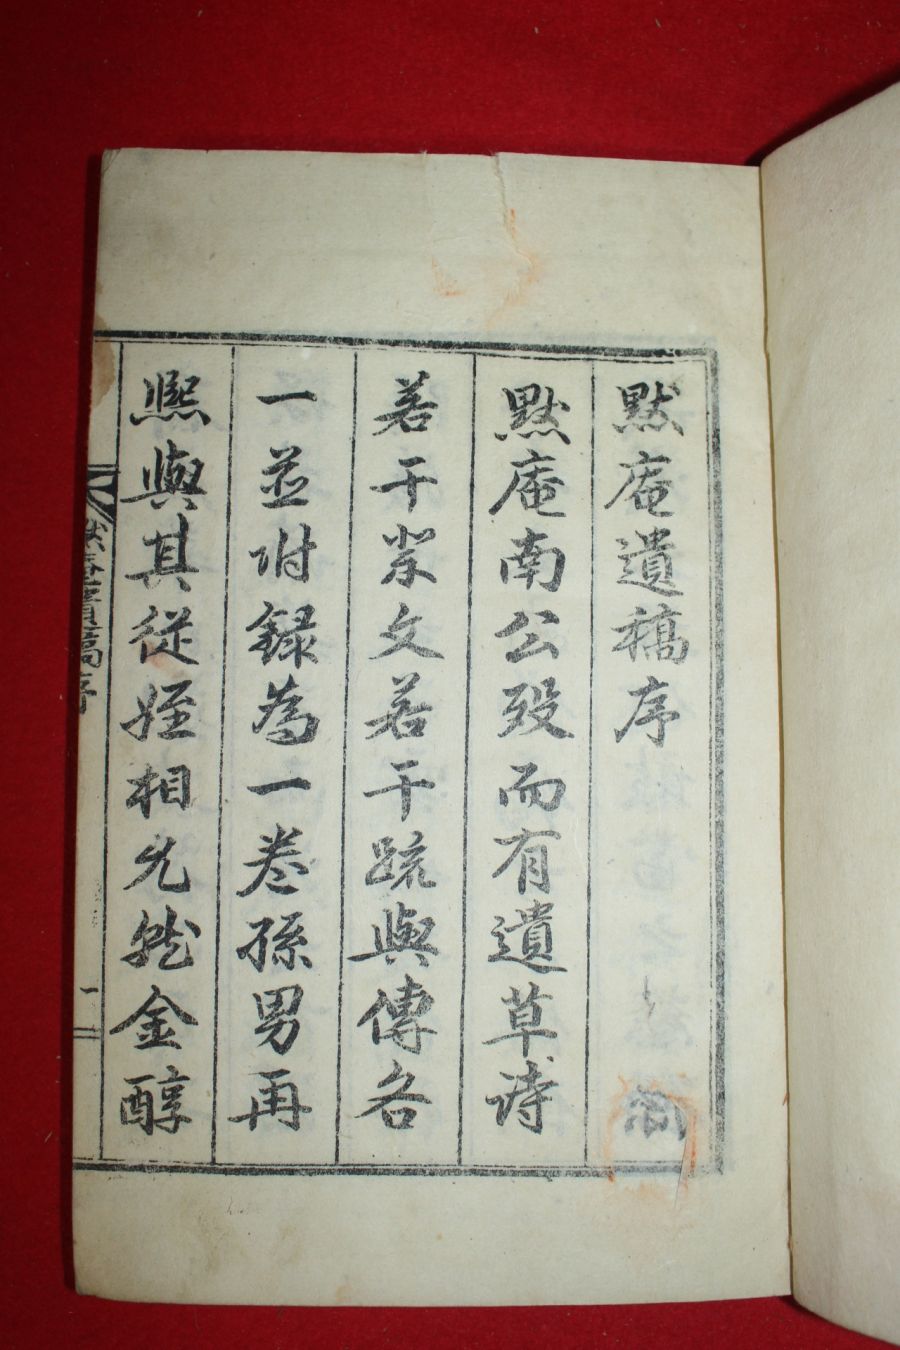 默庵遺稿序
默庵南公歿而有遺草詩
若干帋文若干䟽與傳各
一並附錄為一卷孫男再
熙與其從姪相允就金醇
默庵遺稿序 一